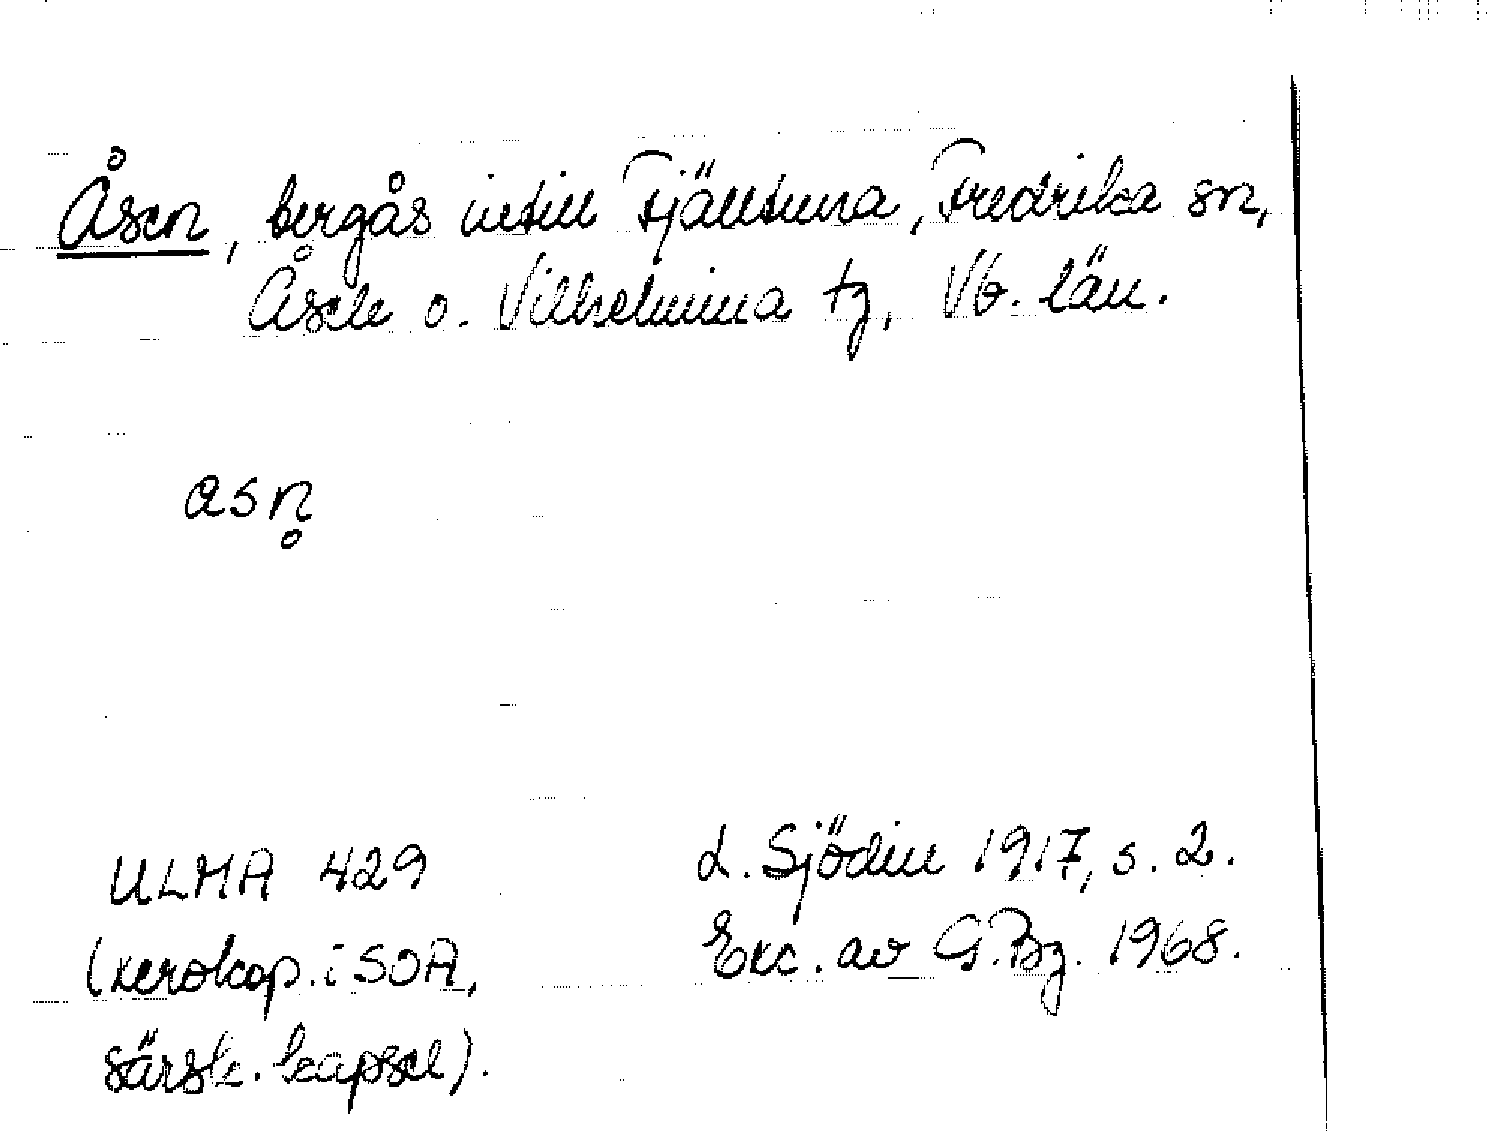 Åsen, bergås intill Fjälltuna, Fredrika sn,
Åsele o. Vilhelmina tg, Vb. län.
asn̥
ULMA 429
(xerokop. i SOA,
särsk. kapsel).
L. Sjödin 1917, s. 2.
Exc. av G. Bg. 1968.